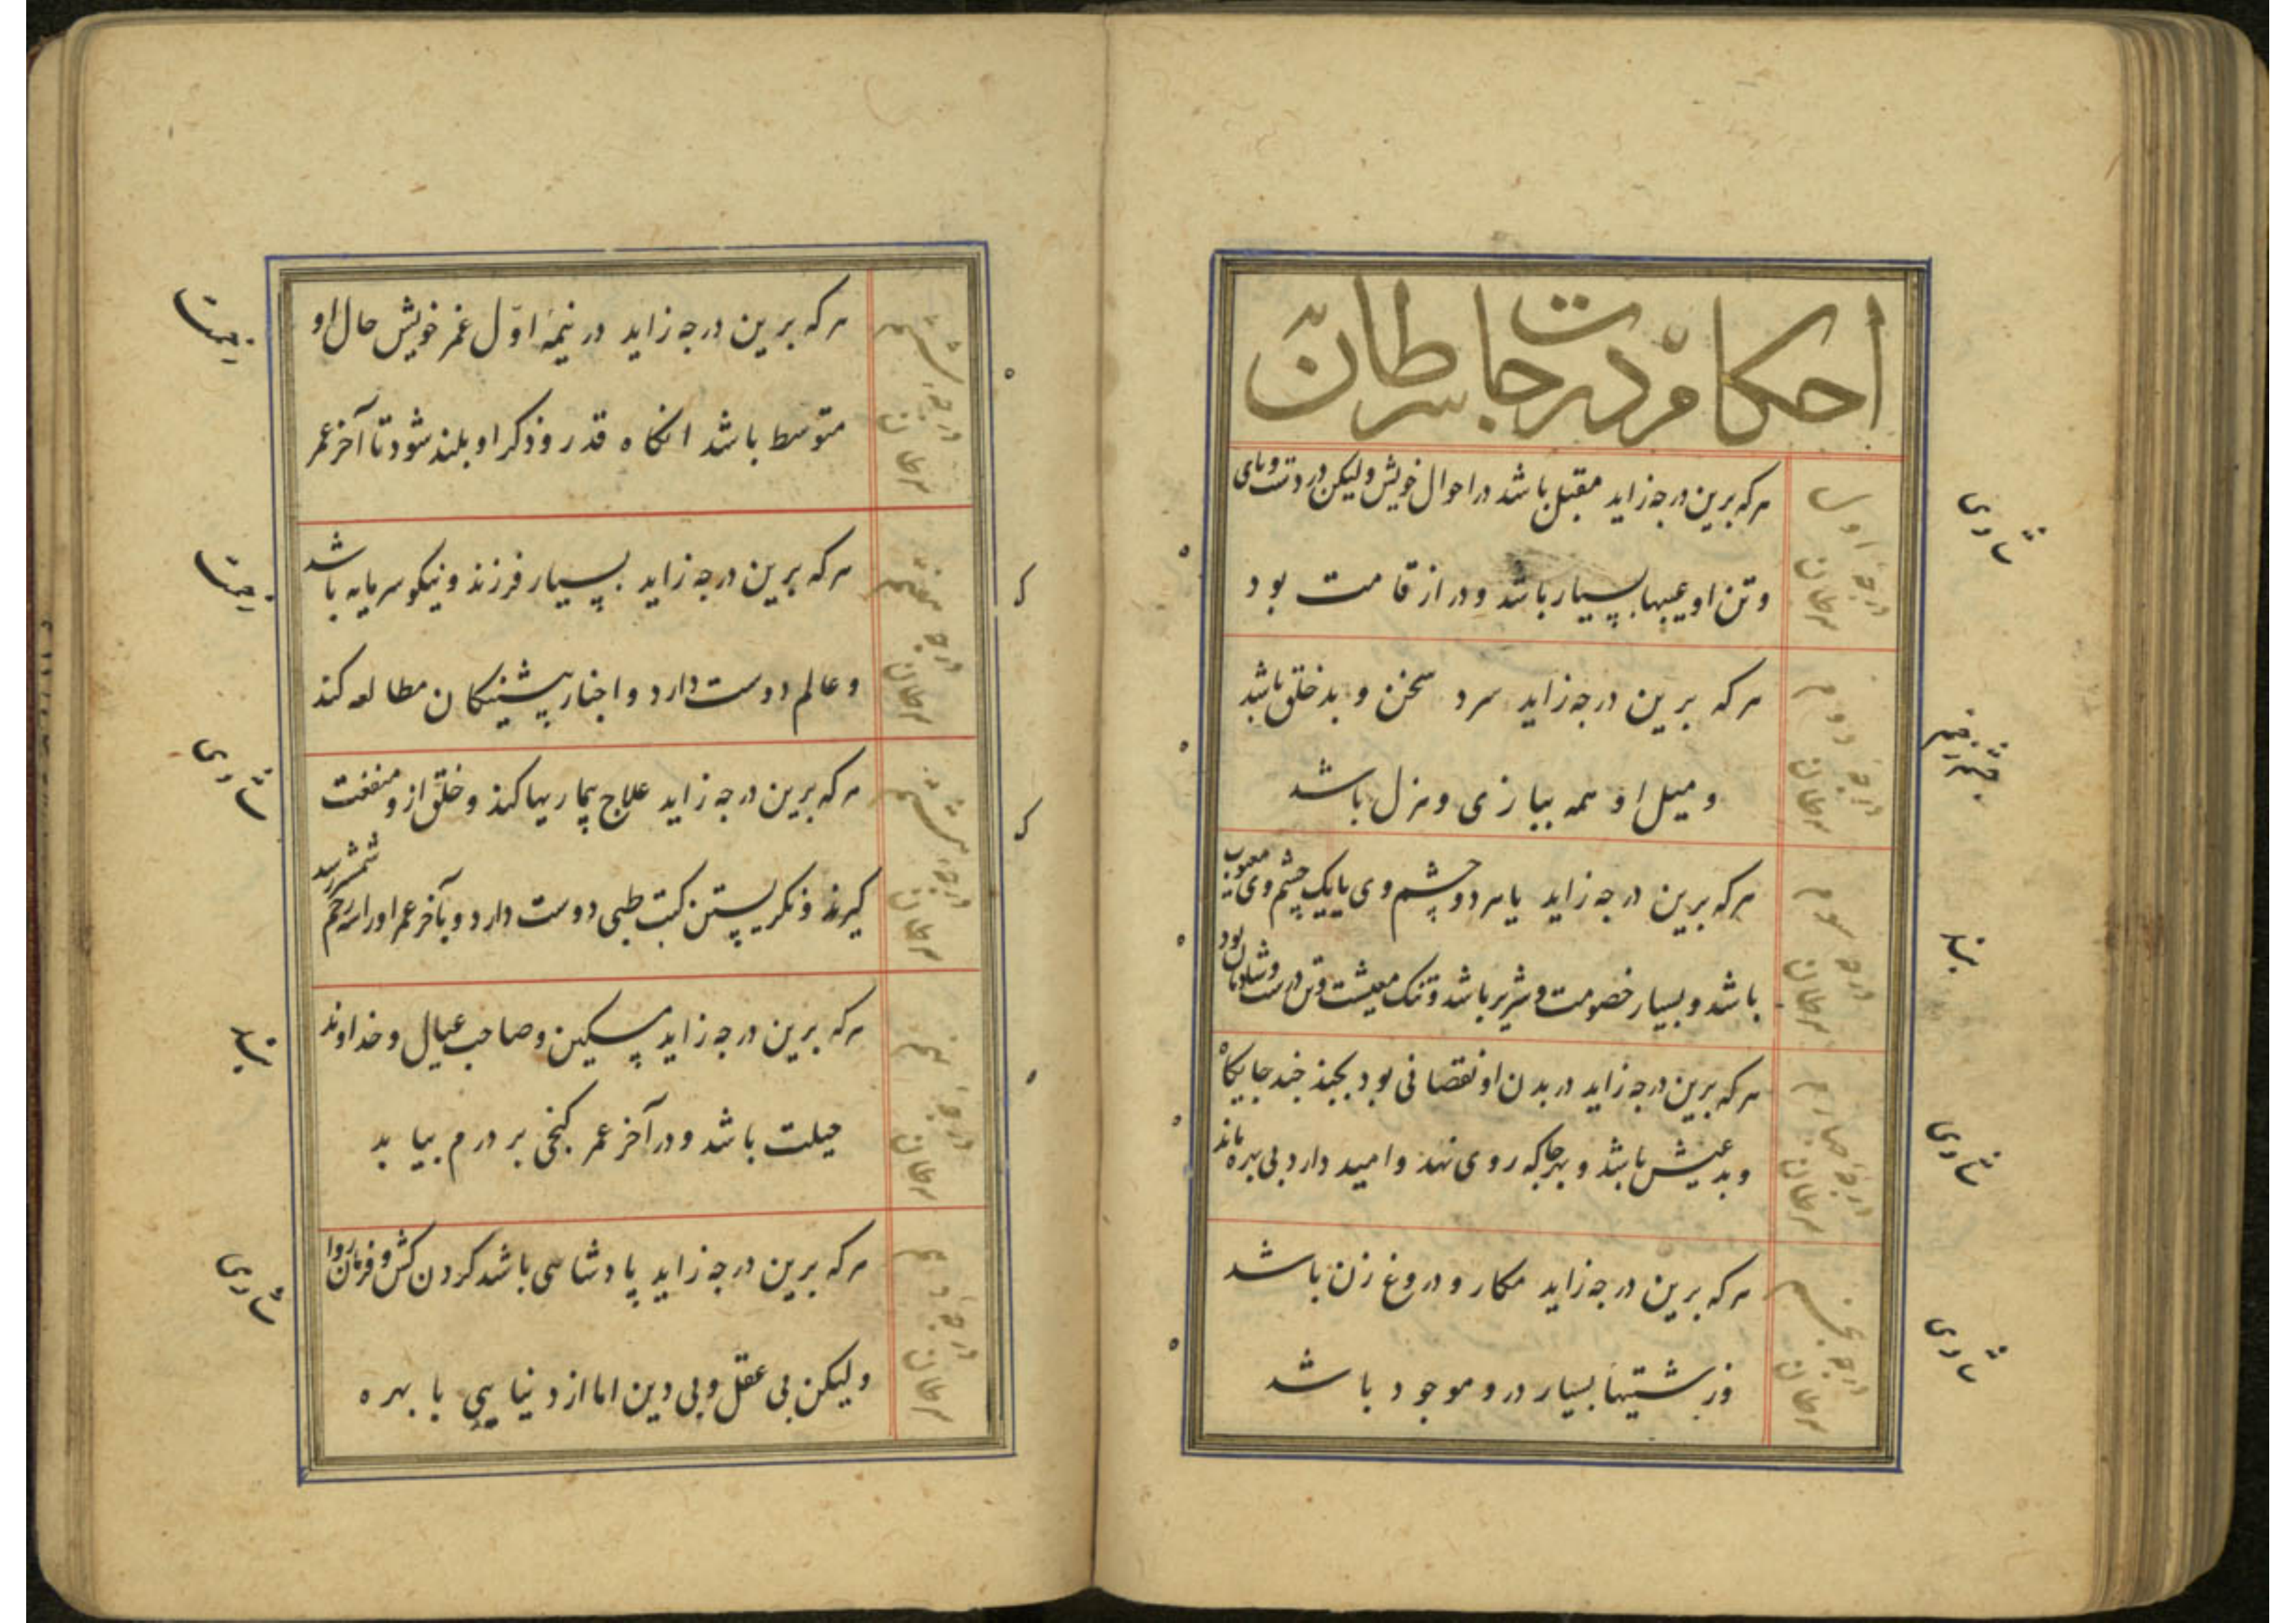 احکام درجات سرطان
درجهٔ اول
سرطان
هرکه برین درجه زاید مقبل باشد در احوال خویش ولیکن در دست و پای
و تن او عیبها بسیار باشد و دراز قامت بود
درجهٔ دوم
سرطان
هرکه برین درجه زاید سرد سخن و بدخلق باشد
و میل او همه ببازی و هزل باشد
درجهٔ سوم
سرطان
هرکه برین درجه زاید یا هر دو چشم وی یا یک چشم وی معیوب
باشد و بسیار خصومت و شریر باشد و تنک معیشت و تن درست و شادمان بود
درجهٔ چهارم
سرطان
هرکه برین درجه زاید در بدن او نقصانی بود بچند جایکاه
و بدعیش باشد و بهرجا که روی نهد و امید دارد بی بهره ماند
درجه پنجم
سرطان
هرکه برین درجه زاید مکار و دروغ زن باشد
و زشتیها بسیار درو موجود باشد
درجهٔ ششم
سرطان
هرکه برین درجه زاید در نیمهٔ اوّل عمر خویش حال او
متوسط باشد انکاه قدر و ذکر او بلند شود تا آخر عمر
درجه هفتم
سرطان
هرکه برین درجه زاید بسیار فرزند و نیکو سرمایه باشد
و عالم دوست دارد و اخبار پیشینکان مطالعه کند
درجهٔ هشتم
سرطان
هرکه برین درجه زاید علاج بیماریها کند و خلق ازو منفعت
کیرند و نکریستن کتب طبی دوست دارد و بآخر عمر او را زخم شمشیر رسد
درجهٔ نهم
سرطان
هرکه برین درجه زاید مسکین و صاحب عیال و خداوند
حیلت باشد و در آخر عمر کنجی پر درم بیابد
درجهٔ دهم
سرطان
هرکه برین درجه زاید پادشاهی باشد کردن کش و فرمان روا
ولیکن بی عقل و بی دین اما از دنیا با بهره